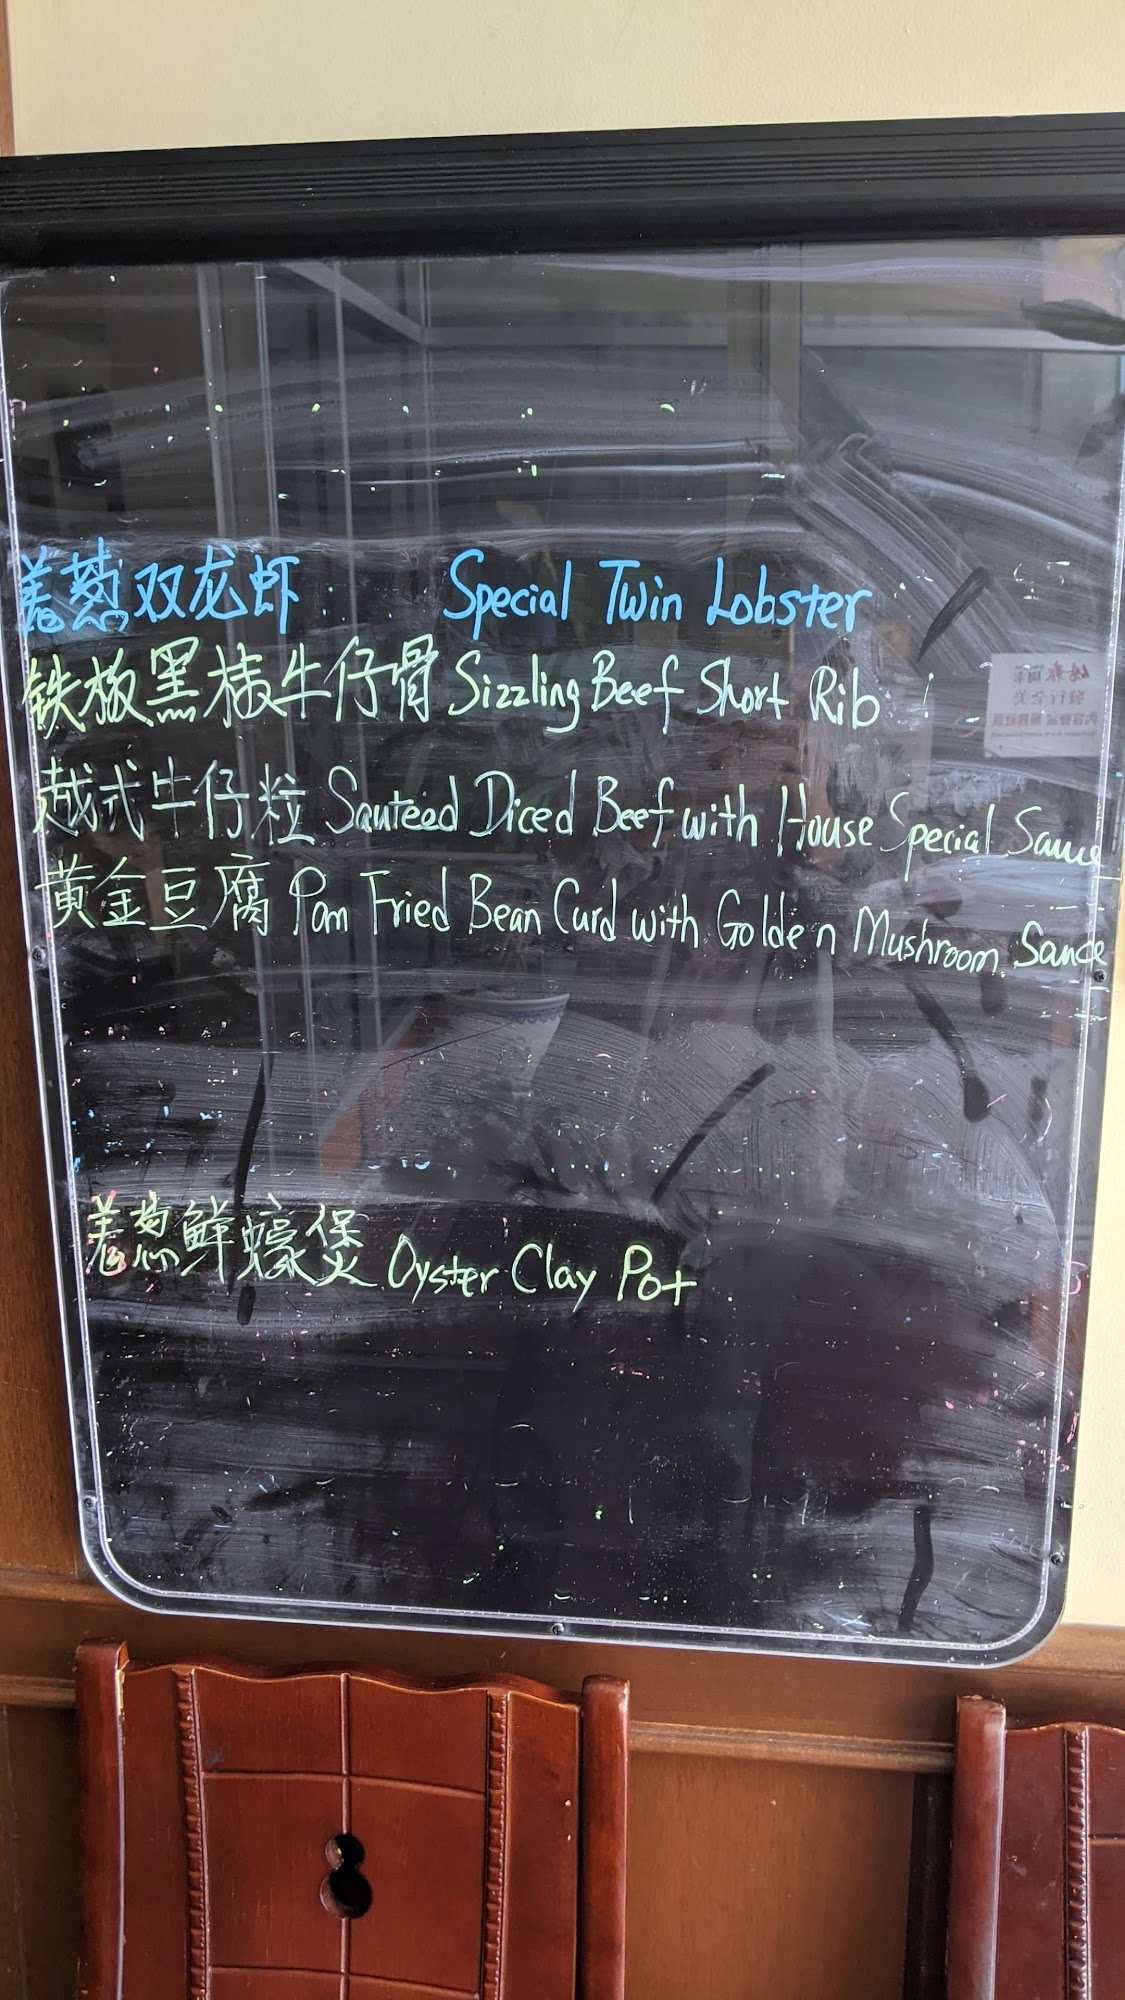 姜葱双龙虾 Special Twin Lobster
铁板黑椒牛仔骨 Sizzling Beef Short Rib
越式牛仔粒 Sauteed Diced Beef with House Special Sauce
黄金豆腐 Pam Fried Bean Curd with Golden Mushroom Sauce
姜葱鲜蠔煲 Oyster Clay Pot